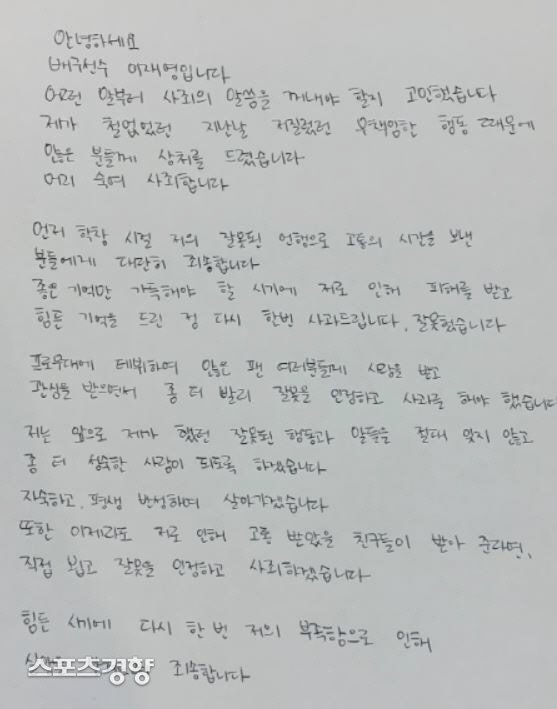 안녕하세요
배구선수 이재영입니다
어떤 말부터 사죄의 말씀을 꺼내야 할지 고민했습니다
제가 철없었던 지난날 저질렀던 무책임한 행동 때문에
많은 분들께 상처를 드렸습니다
머리 숙여 사죄합니다
먼저 학창 시절 저의 잘못된 언행으로 고통의 시간을 보낸
분들에게 대단히 죄송합니다
좋은 기억만 가득해야 할 시기에 저로 인해 피해를 받고
힘든 기억을 드린 점 다시 한번 사과드립니다. 잘못했습니다
프로무대에 데뷔하여 많은 팬 여러분들께 사랑을 받고
관심을 받으면서 좀 더 빨리 잘못을 인정하고 사과를 해야 했습니다
저는 앞으로 제가 했던 잘못된 행동과 말들을 절대 잊지 않고
좀 더 성숙한 사람이 되도록 하겠습니다
자숙하고, 평생 반성하며 살아가겠습니다
또한 이제라도 저로 인해 고통 받았을 친구들이 받아 준다면,
직접 뵙고 잘못을 인정하고 사죄하겠습니다
힘든 시기에 다시 한 번 저의 부족함으로 인해
죄송합니다
스포츠경향